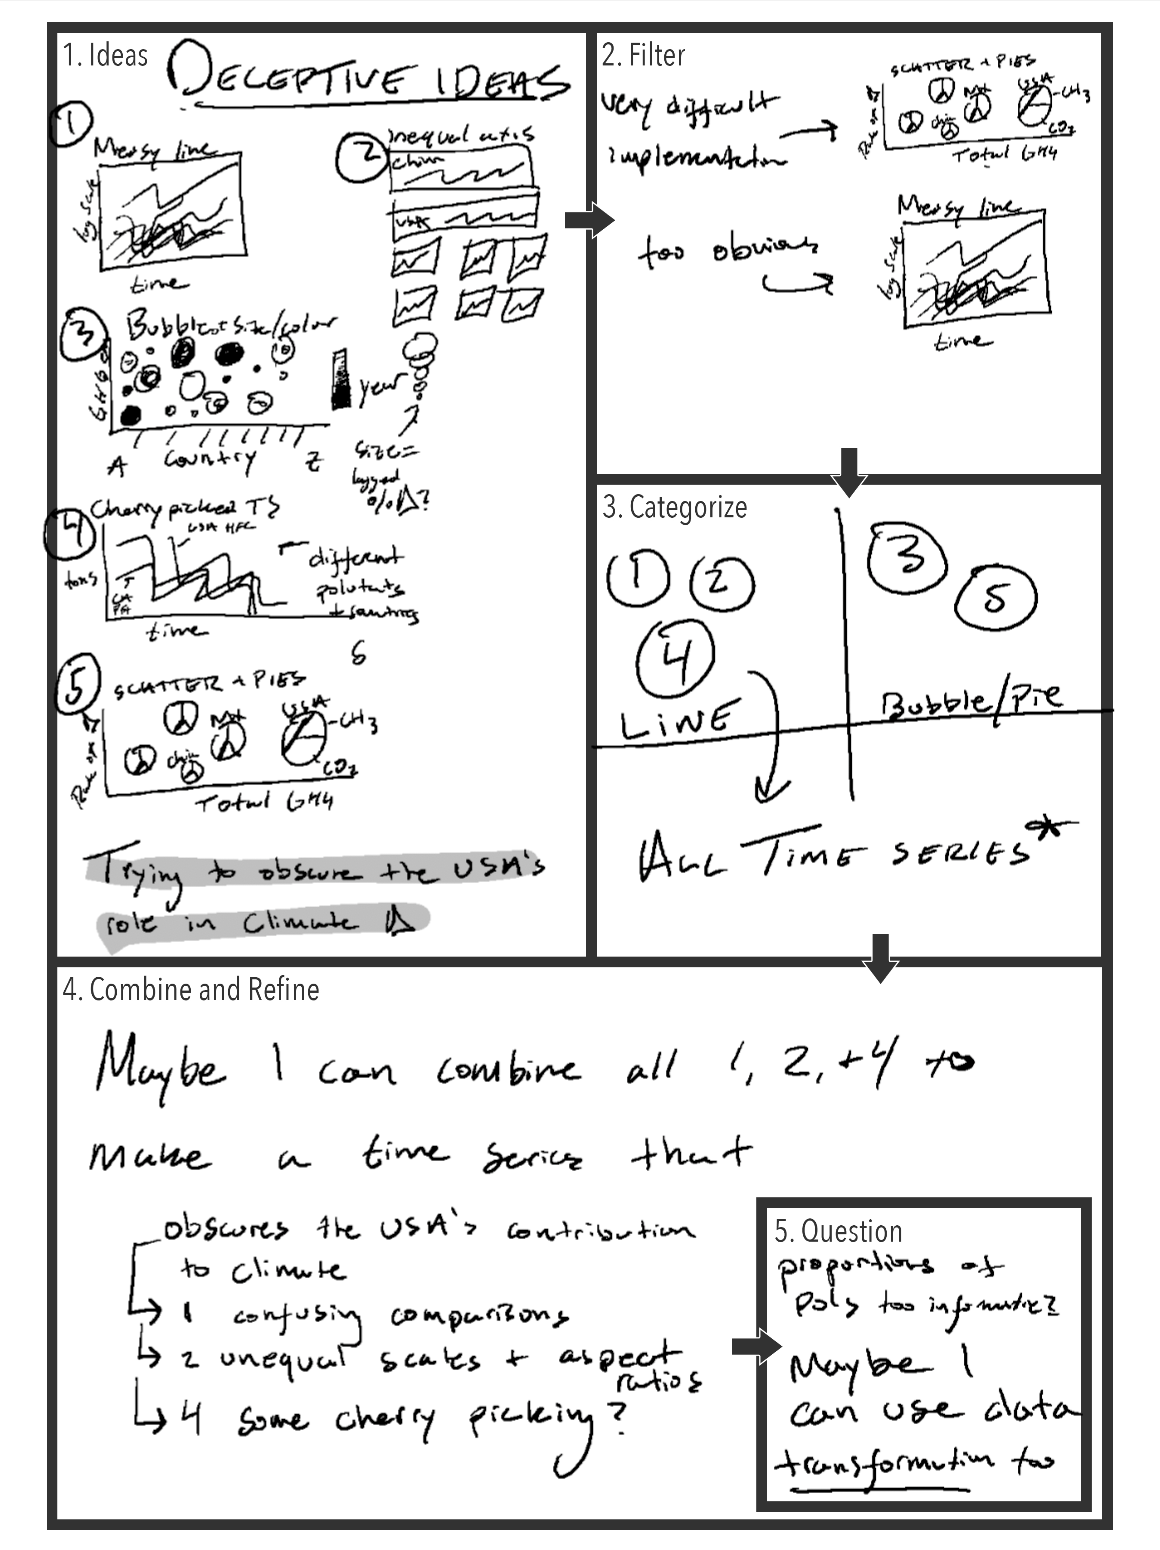 1. Ideas
DECEPTIVE IDEAS
1
Messy line
log scale
time
2
inequal axis
China
USA
3
Bubble size/color
GHG
year
A Country Z
size=
logged
%Δ?
4
Cherry picked TS
USA HFC
tons
time
different
polutants
5
SCATTER + PIES
USA
CH3
CO2
Total GHG
Trying to obscure the USA's
role in Climate Δ
2. Filter
very difficult
implementation
SCATTER + PIES
USA
CH3
CO2
Total GHG
too obvious
Messy line
log scale
time
3. Categorize
1 2
4
LINE
3
5
Bubble/Pie
ALL TIME SERIES*
4. Combine and Refine
Maybe I can combine all 1, 2, +4 to
make a time series that
obscures the USA's contribution
to climate
1 confusing comparisons
2 unequal scales + aspect
ratios
4 some cherry picking?
5. Question
proportions of
pols too informative?
Maybe I
can use data
transformation too